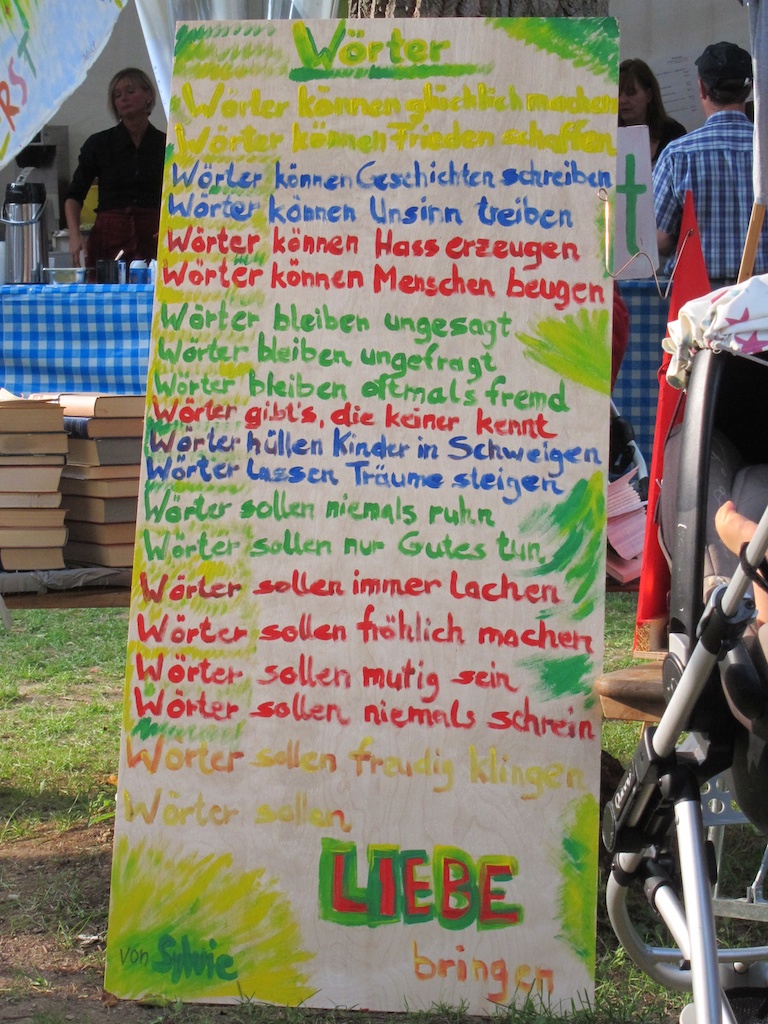 Wörter
Wörter können glücklich machen
Wörter können Frieden schaffen
Wörter können Geschichten schreiben
Wörter können Unsinn treiben
Wörter können Hass erzeugen
Wörter können Menschen beugen
Wörter bleiben ungesagt
Wörter bleiben ungefragt
Wörter bleiben oftmals fremd
Wörter gibt's, die keiner kennt
Wörter hüllen Kinder in Schweigen
Wörter lassen Träume steigen
Wörter sollen niemals ruhn
Wörter sollen nur Gutes tun
Wörter sollen immer lachen
Wörter sollen fröhlich machen
Wörter sollen mutig sein
Wörter sollen niemals schrein
Wörter sollen freudig klingen
Wörter sollen
LIEBE
bringen
von Sylvie
ERST
t